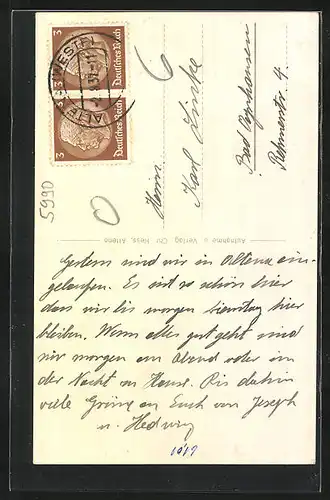 3 Deutsches Reich
3 Deutsches Reich
ALTENA (WESTF)
Herrn
Karl
Bad Oeynhausen
Rehmerstr. 4.
5990
Aufnahme u. Verlag Chr. Hess, Altena
Gestern sind wir in Altena ein-
gelaufen. Es ist so schön hier
dass wir bis morgen Dienstag hier
bleiben. Wenn alles gut geht sind
wir morgen am Abend oder in
der Nacht zu Hause. Bis dahin
viele Grüße an Euch von Joseph
u. Hedwig